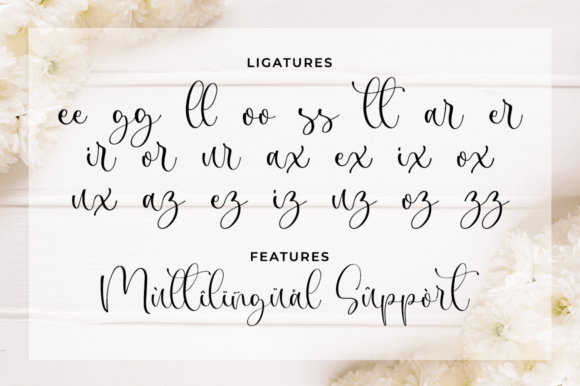 LIGATURES
ee gg ll oo ss tt ar er
ir or ur ax ex ix ox
ux az ez iz uz oz zz
FEATURES
Mùltîlïngüål Sûppòrt